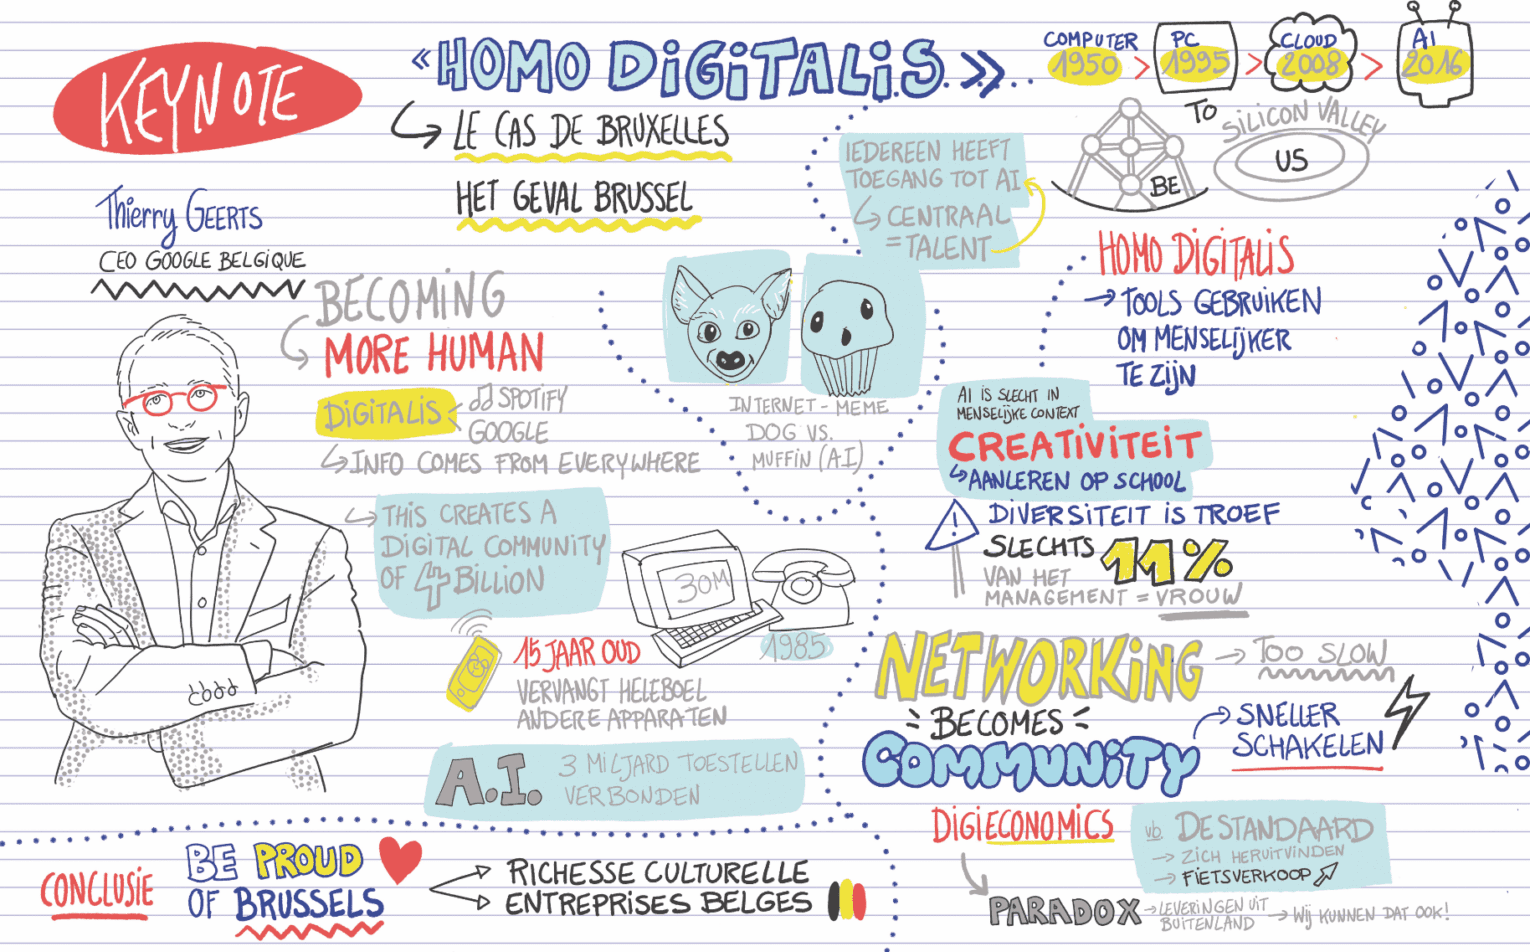 KEYNOTE
«HOMO DIGITALIS»
LE CAS DE BRUXELLES
HET GEVAL BRUSSEL
COMPUTER
1950 >
PC
1995 >
CLOUD
2008 >
AI
2016
BE
TO
SILICON VALLEY
US
Thierry GEERTS
CEO GOOGLE BELGIQUE
BECOMING
MORE HUMAN
DIGITALIS
SPOTIFY
GOOGLE
INFO COMES FROM EVERYWHERE
THIS CREATES A
DIGITAL COMMUNITY
OF 4 BILLION
30M
1985
15 JAAR OUD
VERVANGT HELEBOEL
ANDERE APPARATEN
A.I.
3 MILJARD TOESTELLEN
VERBONDEN
IEDEREEN HEEFT
TOEGANG TOT AI
CENTRAAL
=TALENT
INTERNET-MEME
DOG VS.
MUFFIN (A.I)
HOMO DIGITALIS
→ TOOLS GEBRUIKEN
OM MENSELIJKER
TE ZIJN
AI IS SLECHT IN
MENSELIJKE CONTEXT
CREATIVITEIT
AANLEREN OP SCHOOL
!
DIVERSITEIT IS TROEF
SLECHTS 11%
VAN HET
MANAGEMENT = VROUW
NETWORKING
→ TOO SLOW
BECOMES
COMMUNITY
SNELLER
SCHAKELEN
DIGIECONOMICS
vb. DE STANDAARD
→ ZICH HERUITVINDEN
→ FIETSVERKOOP
PARADOX
→ LEVERINGEN UIT
BUITENLAND
→ Wij KUNNEN DAT OOK!
CONCLUSIE
BE PROUD
OF BRUSSELS
RICHESSE CULTURELLE
ENTREPRISES BELGES